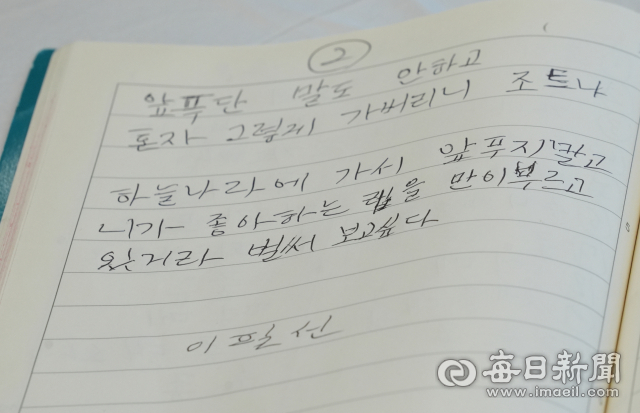 2
앞푸단 말도 안하고
혼자 그렇게 가버리니 조트냐
하늘나라에 가서 앞푸지말고
니가 좋아하는 랩을 만이부르고
있는거라 벌써 보고싶다
이필선
每日新聞
www.imaeil.com